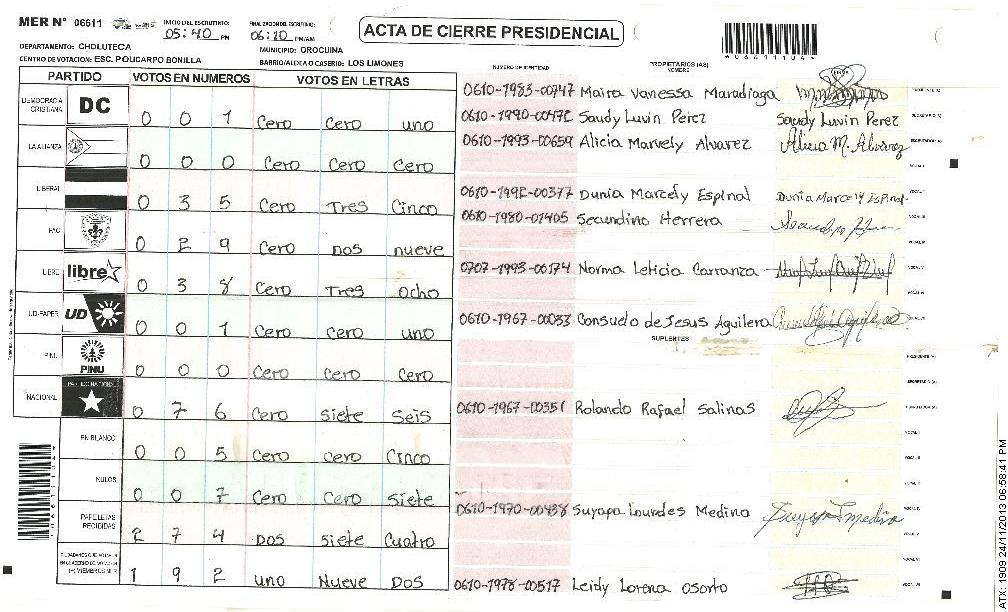 MER N° 06611
INICIO DEL ESCRUTINIO:
05:40 PM
FINALIZACION DEL ESCRUTINIO:
06:20 PM/AM
ACTA DE CIERRE PRESIDENCIAL
*06611104*
DEPARTAMENTO: CHOLUTECA
MUNICIPIO: OROCUINA
CENTRO DE VOTACION: ESC. POLICARPO BONILLA
BARRIO/ALDEA O CASERIO: LOS LIMONES
PARTIDO VOTOS EN NUMEROS VOTOS EN LETRAS
DEMOCRACIA CRISTIANA DC 0 0 1 Cero Cero uno
LA ALIANZA 0 0 0 Cero Cero Cero
LIBERAL 0 3 5 Cero Tres Cinco
PAC 0 2 9 Cero Dos nueve
LIBRE libre 0 3 8 Cero Tres ocho
UD-FAPER UD 0 0 1 Cero Cero uno
PINU PINU 0 0 0 Cero Cero Cero
NACIONAL PARTIDO NACIONAL 0 7 6 Cero Siete Seis
EN BLANCO 0 0 5 Cero Cero Cinco
NULOS 0 0 7 Cero Cero Siete
PAPELETAS RECIBIDAS 2 7 4 Dos Siete Cuatro
CIUDADANOS QUE VOTARON EN CUADERNO DE VOTACION (+) MIEMBROS MER 1 9 2 uno Nueve Dos
NUMERO DE IDENTIDAD PROPIETARIOS (AS) NOMBRE FIRMA
0610-1983-00747 Maira Vanessa Maradiaga PRESIDENTE (A)
0610-1990-00472 Saudy Luvin Perez Saudy Luvin Perez SECRETARIO (A)
0610-1993-00659 Alicia Marvely Alvarez Alicia M. Alvarez ESCRUTADOR (A)
VOCAL I
0610-1992-00377 Dunia Marcely Espinal Dunia Marcely Espinal VOCAL II
0610-1980-01405 Secundino Herrera VOCAL III
VOCAL IV
0707-1993-00174 Norma Leticia Carranza VOCAL V
VOCAL VI
0610-1967-00033 Consuelo de Jesus Aguilera VOCAL VII
SUPLENTES
PRESIDENTE (A)
SECRETARIO (A)
0610-1967-00351 Rolando Rafael Salinas ESCRUTADOR (A)
VOCAL I
VOCAL II
VOCAL III
0610-1970-00438 Suyapa Lourdes Medina VOCAL IV
VOCAL V
VOCAL VI
0610-1978-00517 Leidy Lorena Osorto VOCAL VII
*06611104*
ATX: 1909 24/11/2013 06:58:41 PM